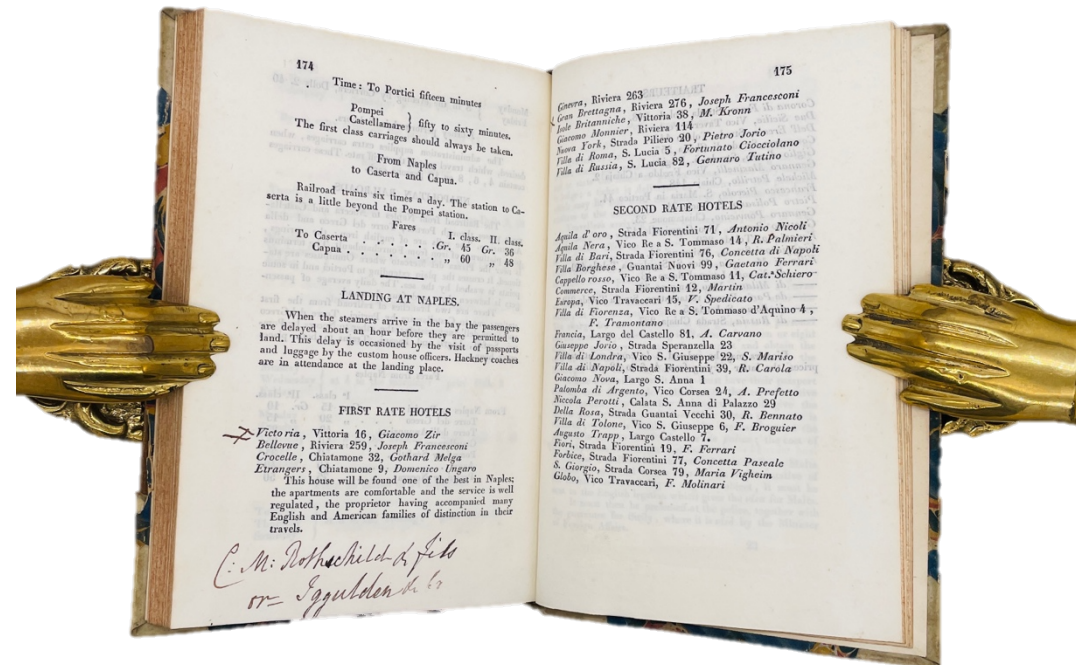 174
Time: To Portici fifteen minutes
Pompei
Castellamare } fifty to sixty minutes.
The first class carriages should always be taken.
From Naples
to Caserta and Capua.
Railroad trains six times a day. The station to Ca-
serta is a little beyond the Pompei station.
Fares
I. class. II. class.
To Caserta . . . . . . Gr. 45 Gr. 36
Capua . . . . . . . „ 60 „ 48
LANDING AT NAPLES.
When the steamers arrive in the bay the passengers
are delayed about an hour before they are permitted to
land. This delay is occasioned by the visit of passports
and luggage by the custom house officers. Hackney coaches
are in attendance at the landing place.
FIRST RATE HOTELS
Victoria, Vittoria 16, Giacomo Zir
Bellovue, Riviera 259, Joseph Francesconi
Crocelle, Chiatamone 32, Gothard Melga
Etrangers, Chiatamone 9, Domenico Ungaro
This house will be found one of the best in Naples;
the apartments are comfortable and the service is well
regulated, the proprietor having accompanied many
English and American families of distinction in their
travels.
C: M: Rothschild & fils
or Iggulden &
175
Ginevra, Riviera 263
Gran Brettagna, Riviera 276, Joseph Francesconi
Isole Britanniche, Vittoria 38, M. Kronn
Giacomo Monnier, Riviera 114
Nuova York, Strada Piliero 20, Pietro Jorio
Villa di Roma, S. Lucia 5, Fortunato Ciocciolano
Villa di Russia, S. Lucia 82, Gennaro Tutino
SECOND RATE HOTELS
Aquila d'oro, Strada Fiorentini 71, Antonio Nicoli
Aquila Nera, Vico Re a S. Tommaso 14, R. Palmieri
Villa di Bari, Strada Fiorentini 76, Concetta di Napoli
Villa Borghese, Guantai Nuovi 99, Gaetano Ferrari
Cappello rosso, Vico Re a S. Tommaso 11, Cat.ª Schiero
Commerce, Strada Fiorentini 12, Martin
Europa, Vico Travaccari 15, V. Spedicato
Villa di Fiorenza, Vico Re a S. Tommaso d'Aquino 4,
F. Tramontano
Francia, Largo del Castello 81, A. Carvano
Guseppe Jorio, Strada Speranzella 23
Villa di Londra, Vico S. Giuseppe 22, S. Mariso
Villa di Napoli, Strada Fiorentini 39, R. Carola
Giacomo Nova, Largo S. Anna 1
Palomba di Argento, Vico Corsea 24, A. Prefetto
Niccola Perotti, Calata S. Anna di Palazzo 29
Della Rosa, Strada Guantai Vecchi 30, R. Bennato
Villa di Tolone, Vico S. Giuseppe 6, F. Broguier
Augusto Trapp, Largo Castello 7.
Fiori, Strada Fiorentini 19, F. Ferrari
Forbice, Strada Fiorentini 77, Concetta Paseale
S. Giorgio, Strada Corsea 79, Maria Vigheim
Globo, Vico Travaccari, F. Molinari